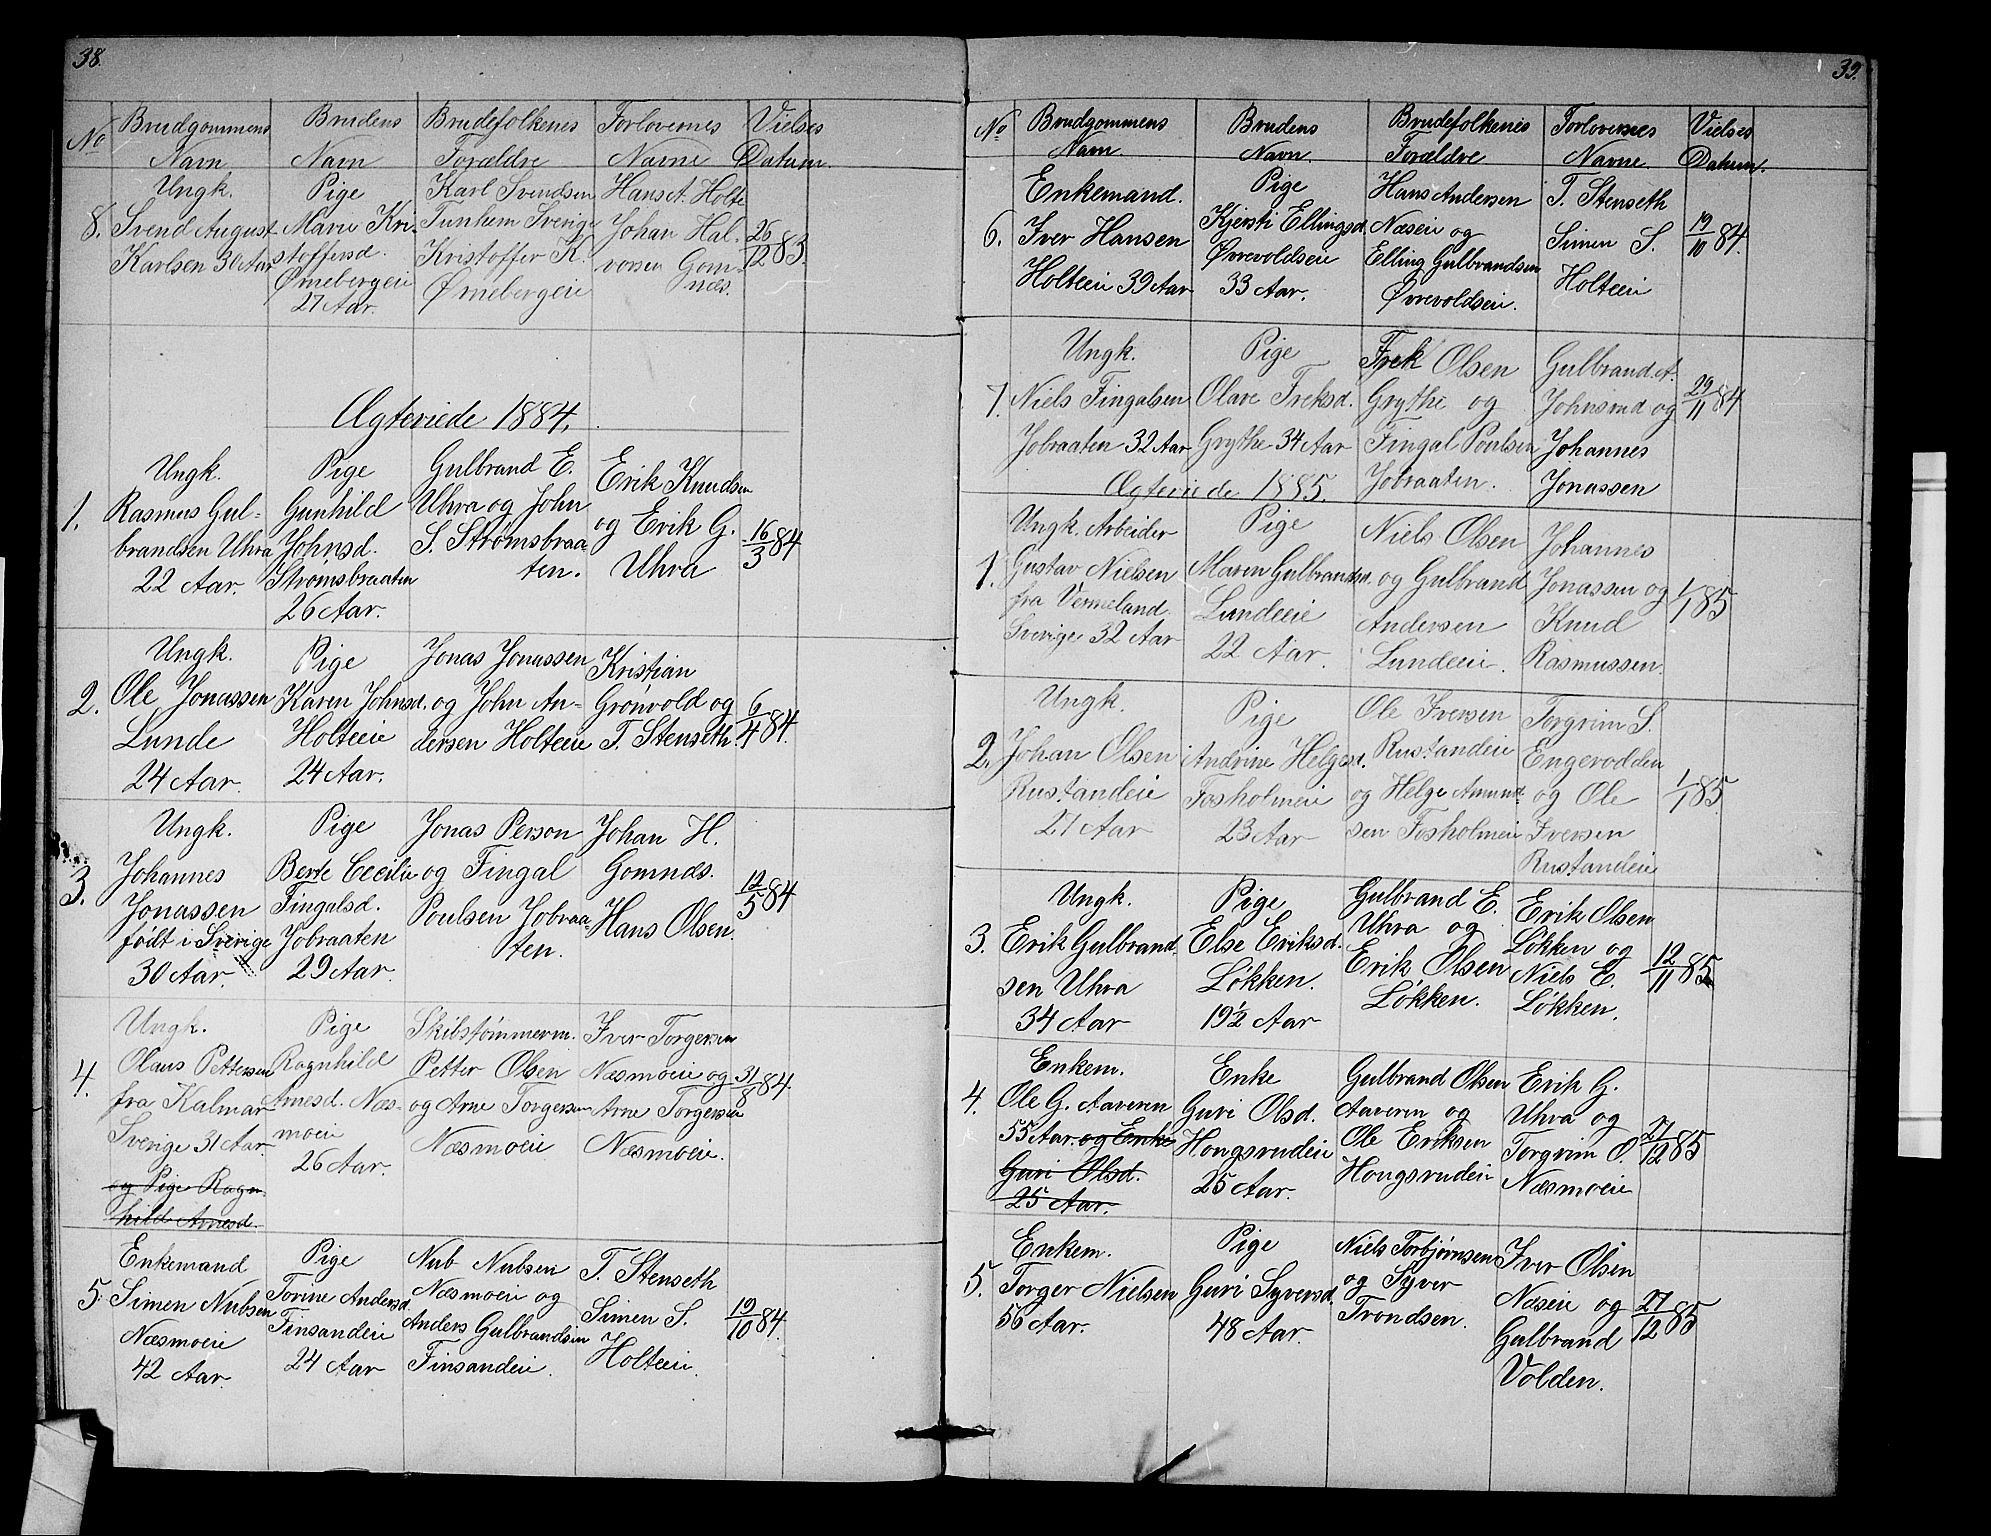 38.
No
Brudgommens Navn
Brudens Navn
Brudefolkenes Forældre
Forlovernes Navne
Vielses Datum.
8.
Ungk.
Svend August
Karlsen 30 Aar
Pige
Maren Kri-
stoffersd.
Ørnebergeie
27 Aar.
Karl Svendsen
Tunhem Sverige
Kristoffer K.
Ørnebergeie
Hans A. Holte
Johan Hal-
vorsen Gom-
næs.
26/12 83.
Ægteviede 1884.
1.
Ungk.
Rasmus Gul-
brandsen Uhra
22 Aar.
Pige
Gunhild
Johnsd.
Strømsbraaten
26 Aar.
Gulbrand E.
Uhra og John
S. Strømsbraa-
ten.
Erik Knudsen
og Erik G.
Uhra
16/3 84
2.
Ungk.
Ole Jonassen
Lunde
24 Aar.
Pige
Karen Johnsd.
Holteeie
24 Aar.
Jonas Jonassen
og John An-
dersen Holteeie
Kristian
Grønvold og
T. Stenseth.
6/4 84.
3.
Ungk.
Johannes
Jonassen
født i Sverige
30 Aar.
Pige
Berte Cecilie
Fingalsd.
Jobraaten
29 Aar.
Jonas Person
og Fingal
Poulsen Jobraa-
ten.
Johan H.
Gomnæs.
Hans Olsen.
12/5 84
4.
Ungk.
Olaus Pettersen
fra Kalmar
Sverige 31 Aar.
og Pige Ragn-
hild Arnesd.
Pige
Ragnhild
Arnesd. Næs-
moeie
26 Aar.
Skibstømmerm.
Petter Olsen
og Arne Torgersen
Næsmoeie
Iver Torgersen
Næsmoeie og
Arne Torgersen
Næsmoeie.
31/8 84.
5.
Enkemand
Simen Nubsen
Næsmoeie
42 Aar.
Pige
Torine Andersd.
Finsandeie
24 Aar
Nub Nubsen
Næsmoeie og
Anders Gulbrandsen
Finsandeie.
T. Stenseth
Simen S.
Holteeie.
19/10 84.
39.
No
Brudgommens Navn.
Brudens Navn.
Brudefolkenes Forældre
Forlovernes Navne.
Vielses Datum.
6.
Enkemand.
Iver Hansen
Holteeie 39 Aar
Pige
Kjersti Ellingsd.
Øvrevoldseie
33 Aar.
Hans Andersen
Næseie og
Elling Gulbrandsen
Øvrevoldseie.
T. Stenseth
Simen S.
Holteeie
19/10 84.
7.
Ungk.
Niels Fingalsen
Jobraaten 32 Aar
Pige
Olave Freksd.
Grythe 34 Aar
Frek Olsen
Grythe og
Fingal Poulsen
Jobraaten.
Gulbrand A.
Johnsrud og
Johannes
Jonassen
29/11 84
Ægteviede 1885.
1.
Ungk. Arbeider
Gustav Nielsen
fra Vermeland.
Sverige 32 Aar
Pige
Maren Gulbrandsd.
Lundeeie
22 Aar.
Niels Olsen
og Gulbrand
Andersen
Lundeeie.
Johannes
Jonassen og
Knud
Rasmussen.
1/1 85
2.
Ungk.
Johan Olsen
Rustandeie
27 Aar
Pige
Andrine Helgesd.
Fosholmeie
23 Aar
Ole Iversen
Rustandeie
og Helge Amund-
sen Fosholmeie
Torgrim S.
Engerodden
og Ole
Iversen
Rustandeie
1/1 85.
3.
Ungk.
Erik Gulbrand-
sen Uhra
34 Aar
Pige
Else Eriksd.
Løkken.
19½ Aar
Gulbrand E.
Uhra og
Erik Olsen
Løkken.
Erik Olsen
Løkken og
Niels E.
Løkken.
12/11 85
4.
Enkem.
Ole G. Aaveren
55 Aar. og Enke
Guri Olsd.
25 Aar.
Enke
Guri Olsd.
Hongsrudeie
25 Aar.
Gulbrand Olsen
Aaveren og
Ole Eriksen
Hongsrudeie
Erik G.
Uhra og
Torgrim O.
Næsmoeie
27/12 85
5.
Enkem.
Torger Nielsen
56 Aar.
Pige
Guri Syversd.
48 Aar.
Niels Torbjørnsen
og Syver
Trondsen.
Iver Olsen
Næseie og
Gulbrand
Volden.
27/12 85